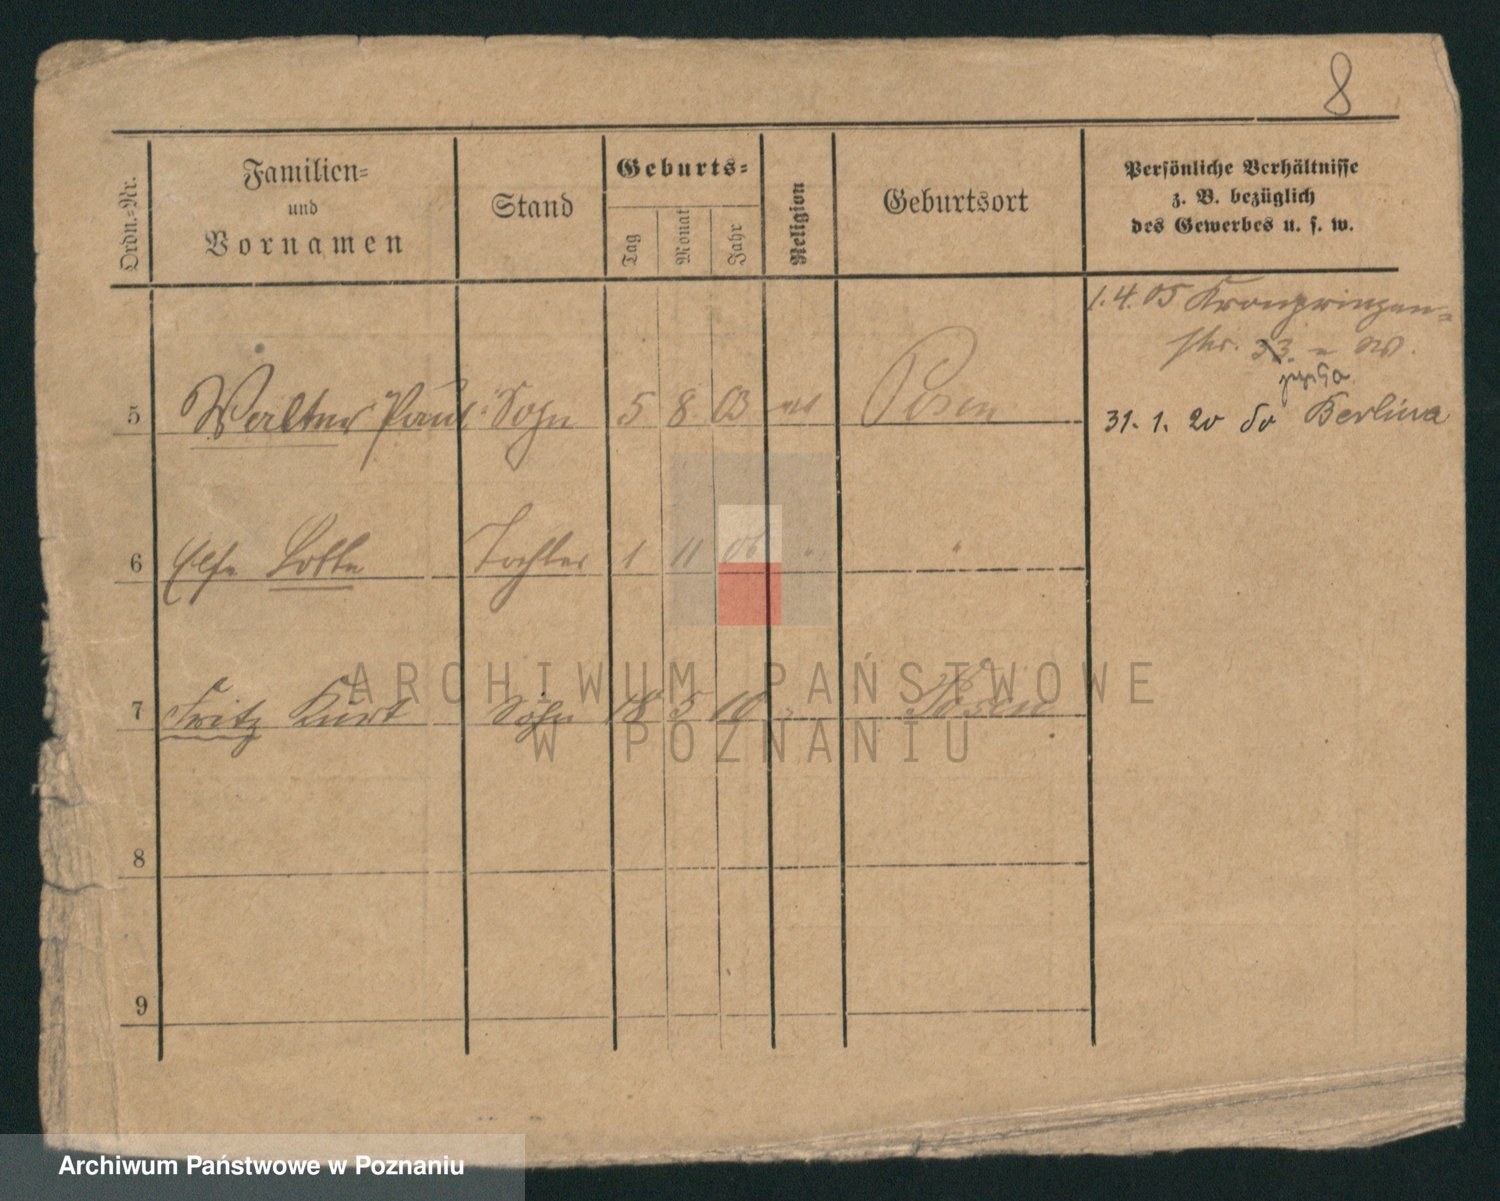 8
Ordn.=Nr.
Familien=
und
Vornamen
Stand
Geburts=
Tag
Monat
Jahr
Religion
Geburtsort
Persönliche Verhältnisse
z. B. bezüglich
des Gewerbes u. s. w.
1.4.05 Kronprinzen=
str. 33.
5 Walter Paul Sohn 5 8 03 Posen
31. 1. 20 do Berlina
6 Else Lotte Tochter 1 11 06 " "
7 Fritz Kurt Sohn 18 5 10 " Posen
8
9
ARCHIWUM PAŃSTWOWE
W POZNANIU
Archiwum Państwowe w Poznaniu